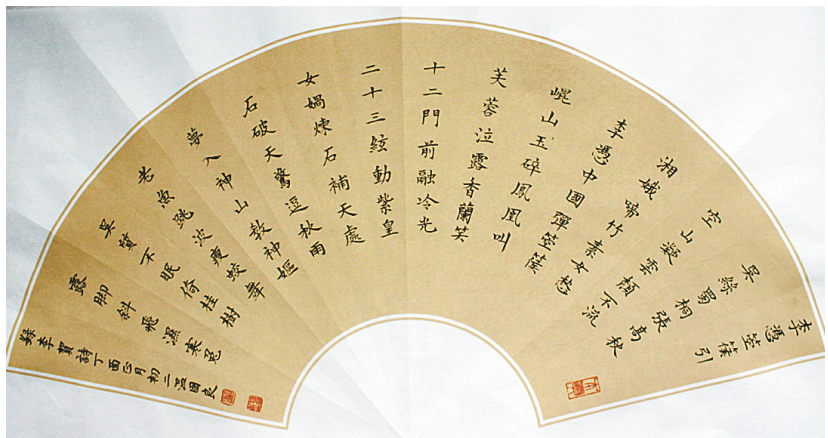 李憑箜篌引
吳絲蜀桐張高秋
空山凝雲頹不流
湘娥啼竹素女愁
李憑中國彈箜篌
崐山玉碎鳳凰叫
芙蓉泣露香蘭笑
十二門前融冷光
二十三絃動紫皇
女媧煉石補天處
石破天驚逗秋雨
夢入神山教神嫗
老魚跳波瘦蛟舞
吳質不眠倚桂樹
露脚斜飛濕寒兔
錄李賀詩丁酉正月初二温国良